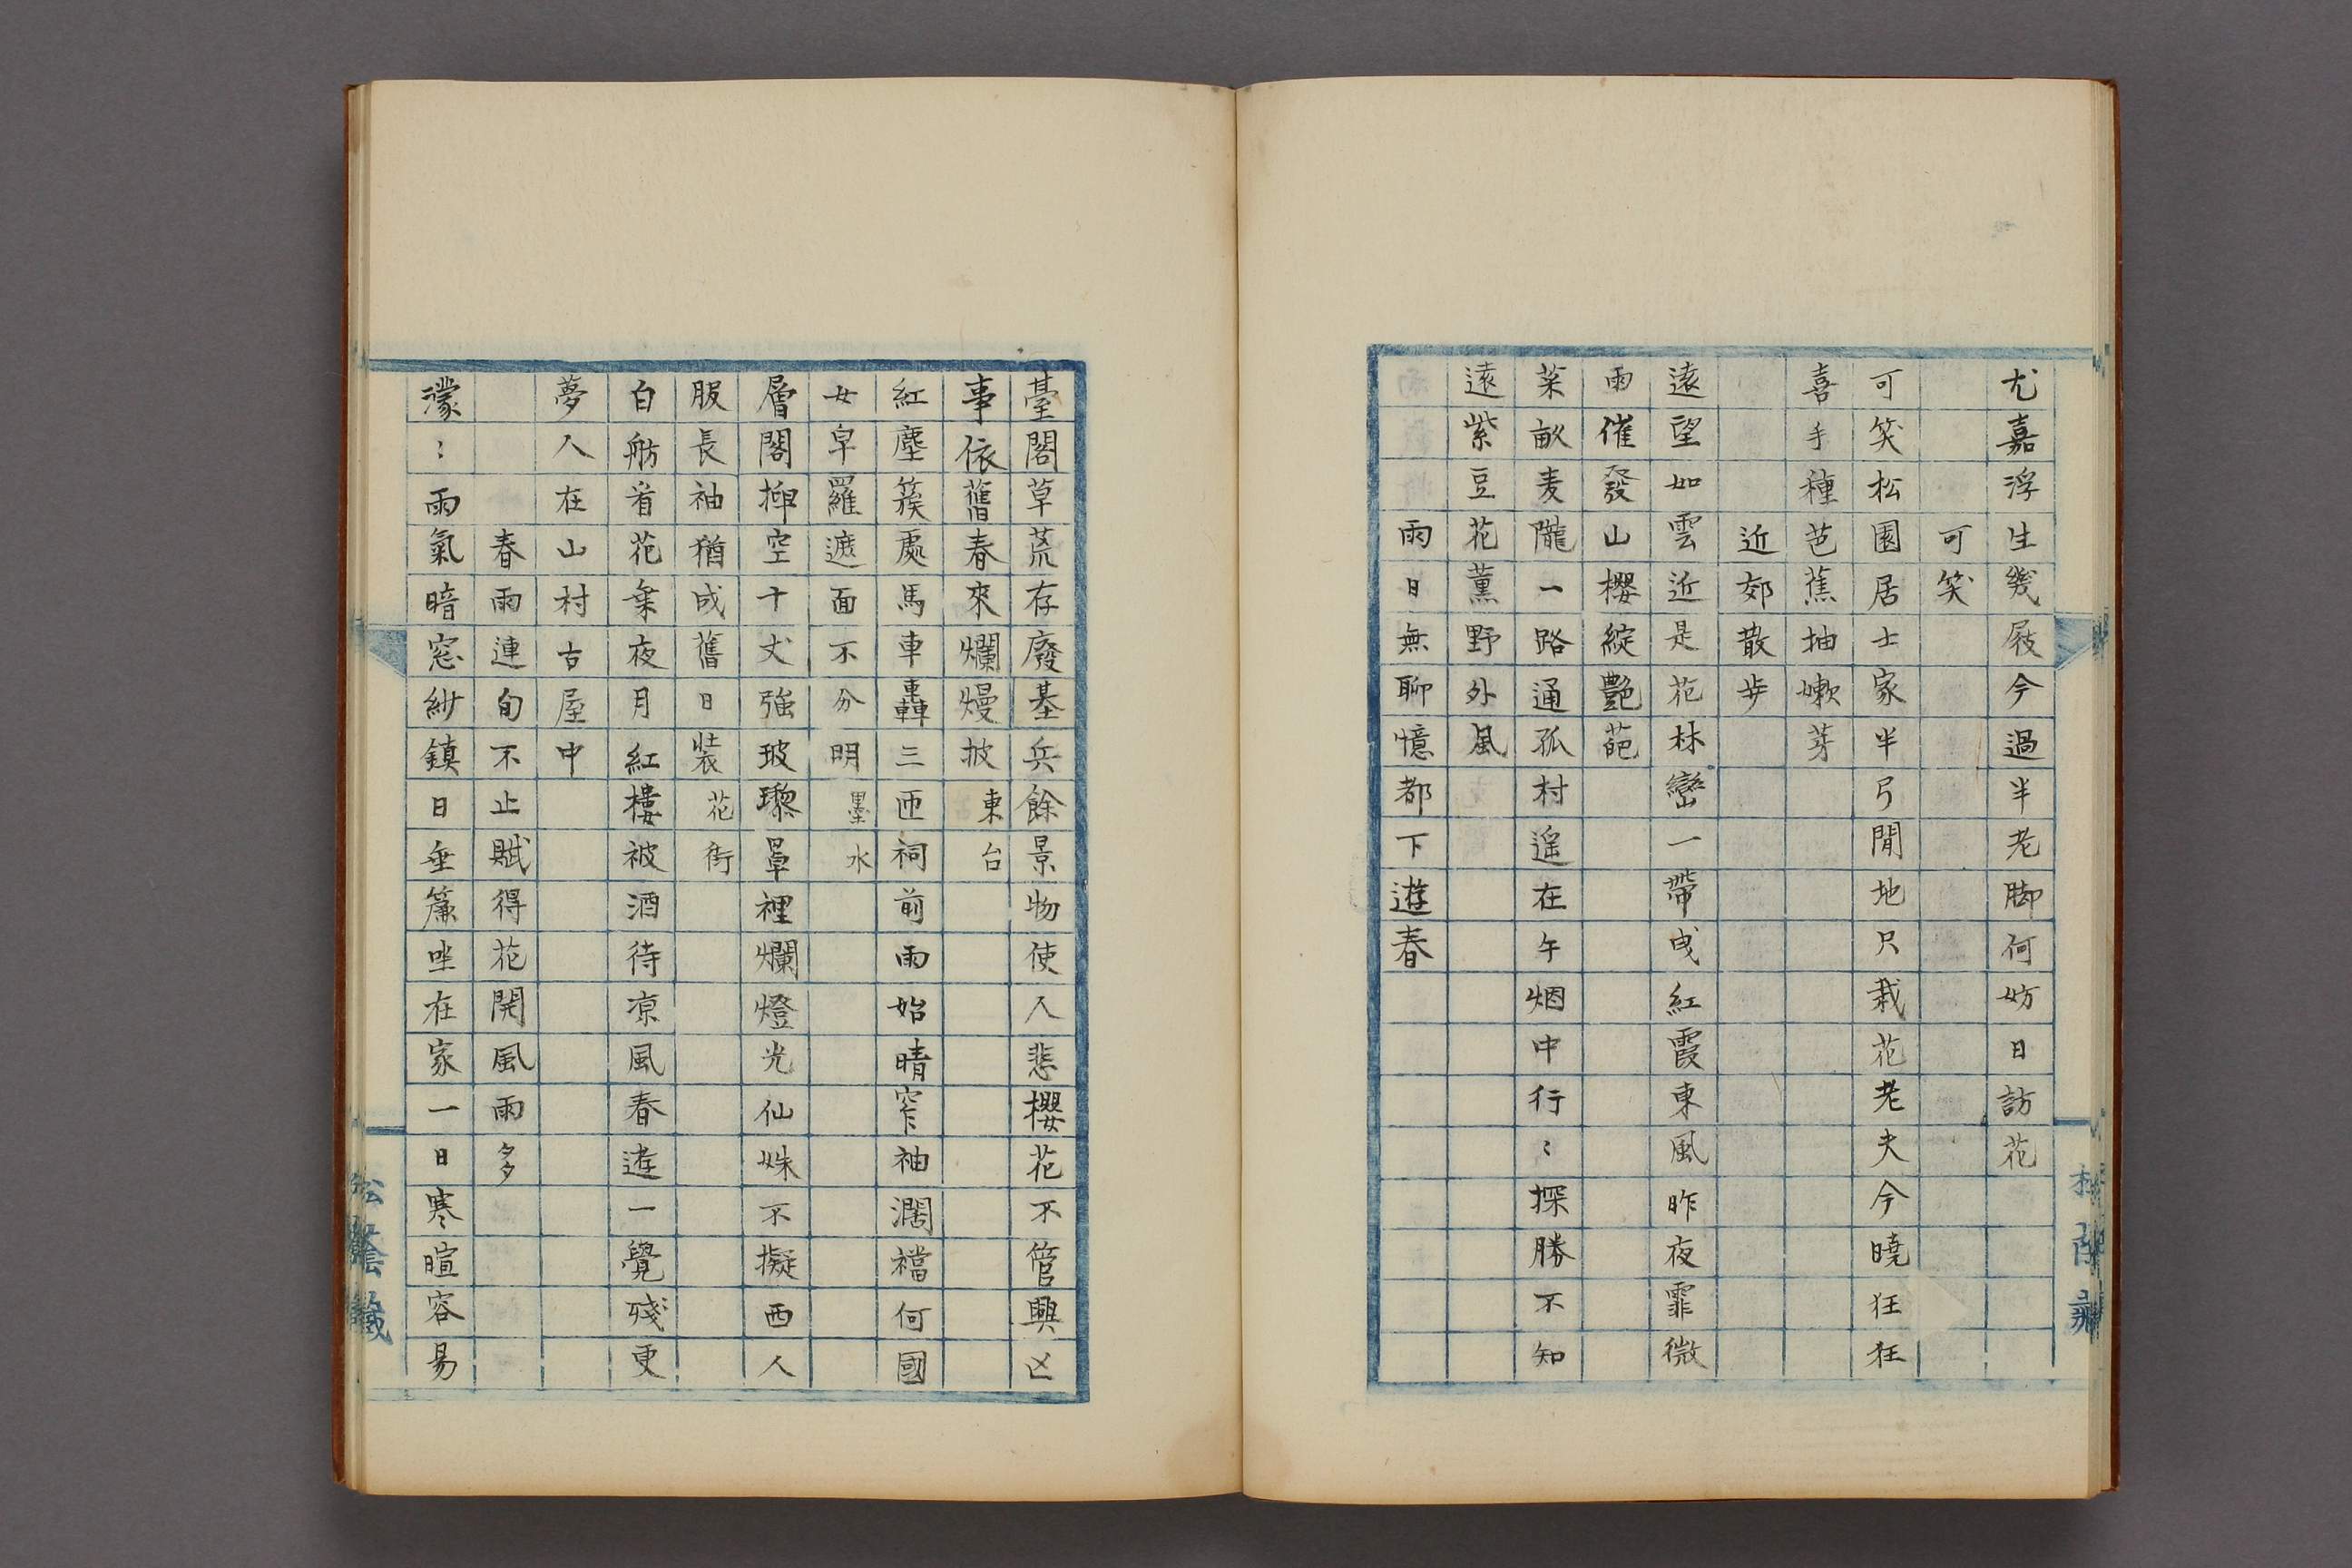 尤嘉浮生幾屐今過半老脚何妨日訪花
可笑
可笑松園居士家半弓閒地只栽花老夫今曉狂狂
喜手種芭蕉抽嫰芽
近郊散歩
遠望如雲近是花林巒一帶成紅霞東風昨夜霏微
雨催發山櫻綻艶葩
菜畝麦隴一路通孤村遥在午烟中行〻探勝不知
遠紫豆花薫野外風
雨日無聊憶都下遊春
臺閣草荒存廢基兵餘景物使人悲櫻花不管興亡
事依舊春來爛熳披 東台
紅塵簇處馬車轟三匝祠前雨始晴窄袖濶襠何國
女皁羅遮面不分明 墨水
層閣抻空十丈強玻瓈罩裡爛燈光仙姝不擬西人
服長袖猶成舊日裝 花街
白舫看花乗夜月紅樓被酒待凉風春遊一覺殘更
夢人在山村古屋中
春雨連旬不止賦得花開風雨多
濛〻雨氣暗窓紗鎮日垂簾坐在家一日寒暄容易
松陰識